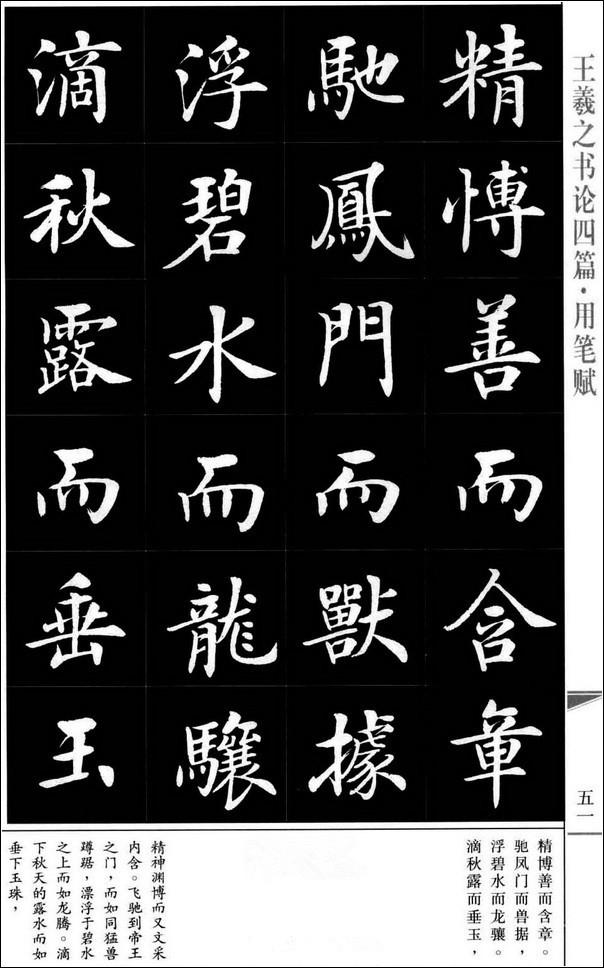 王羲之书论四篇·用笔赋
五一
精博善而含章
馳鳳門而獸據
浮碧水而龍驤
滴秋露而垂玉
精博善而含章。
驰凤门而兽据，
浮碧水而龙骧。
滴秋露而垂玉，
精神渊博而又文采
内含。飞驰到帝王
之门，而如同猛兽
蹲踞，漂浮于碧水
之上而如龙腾。滴
下秋天的露水而如
垂下玉珠，